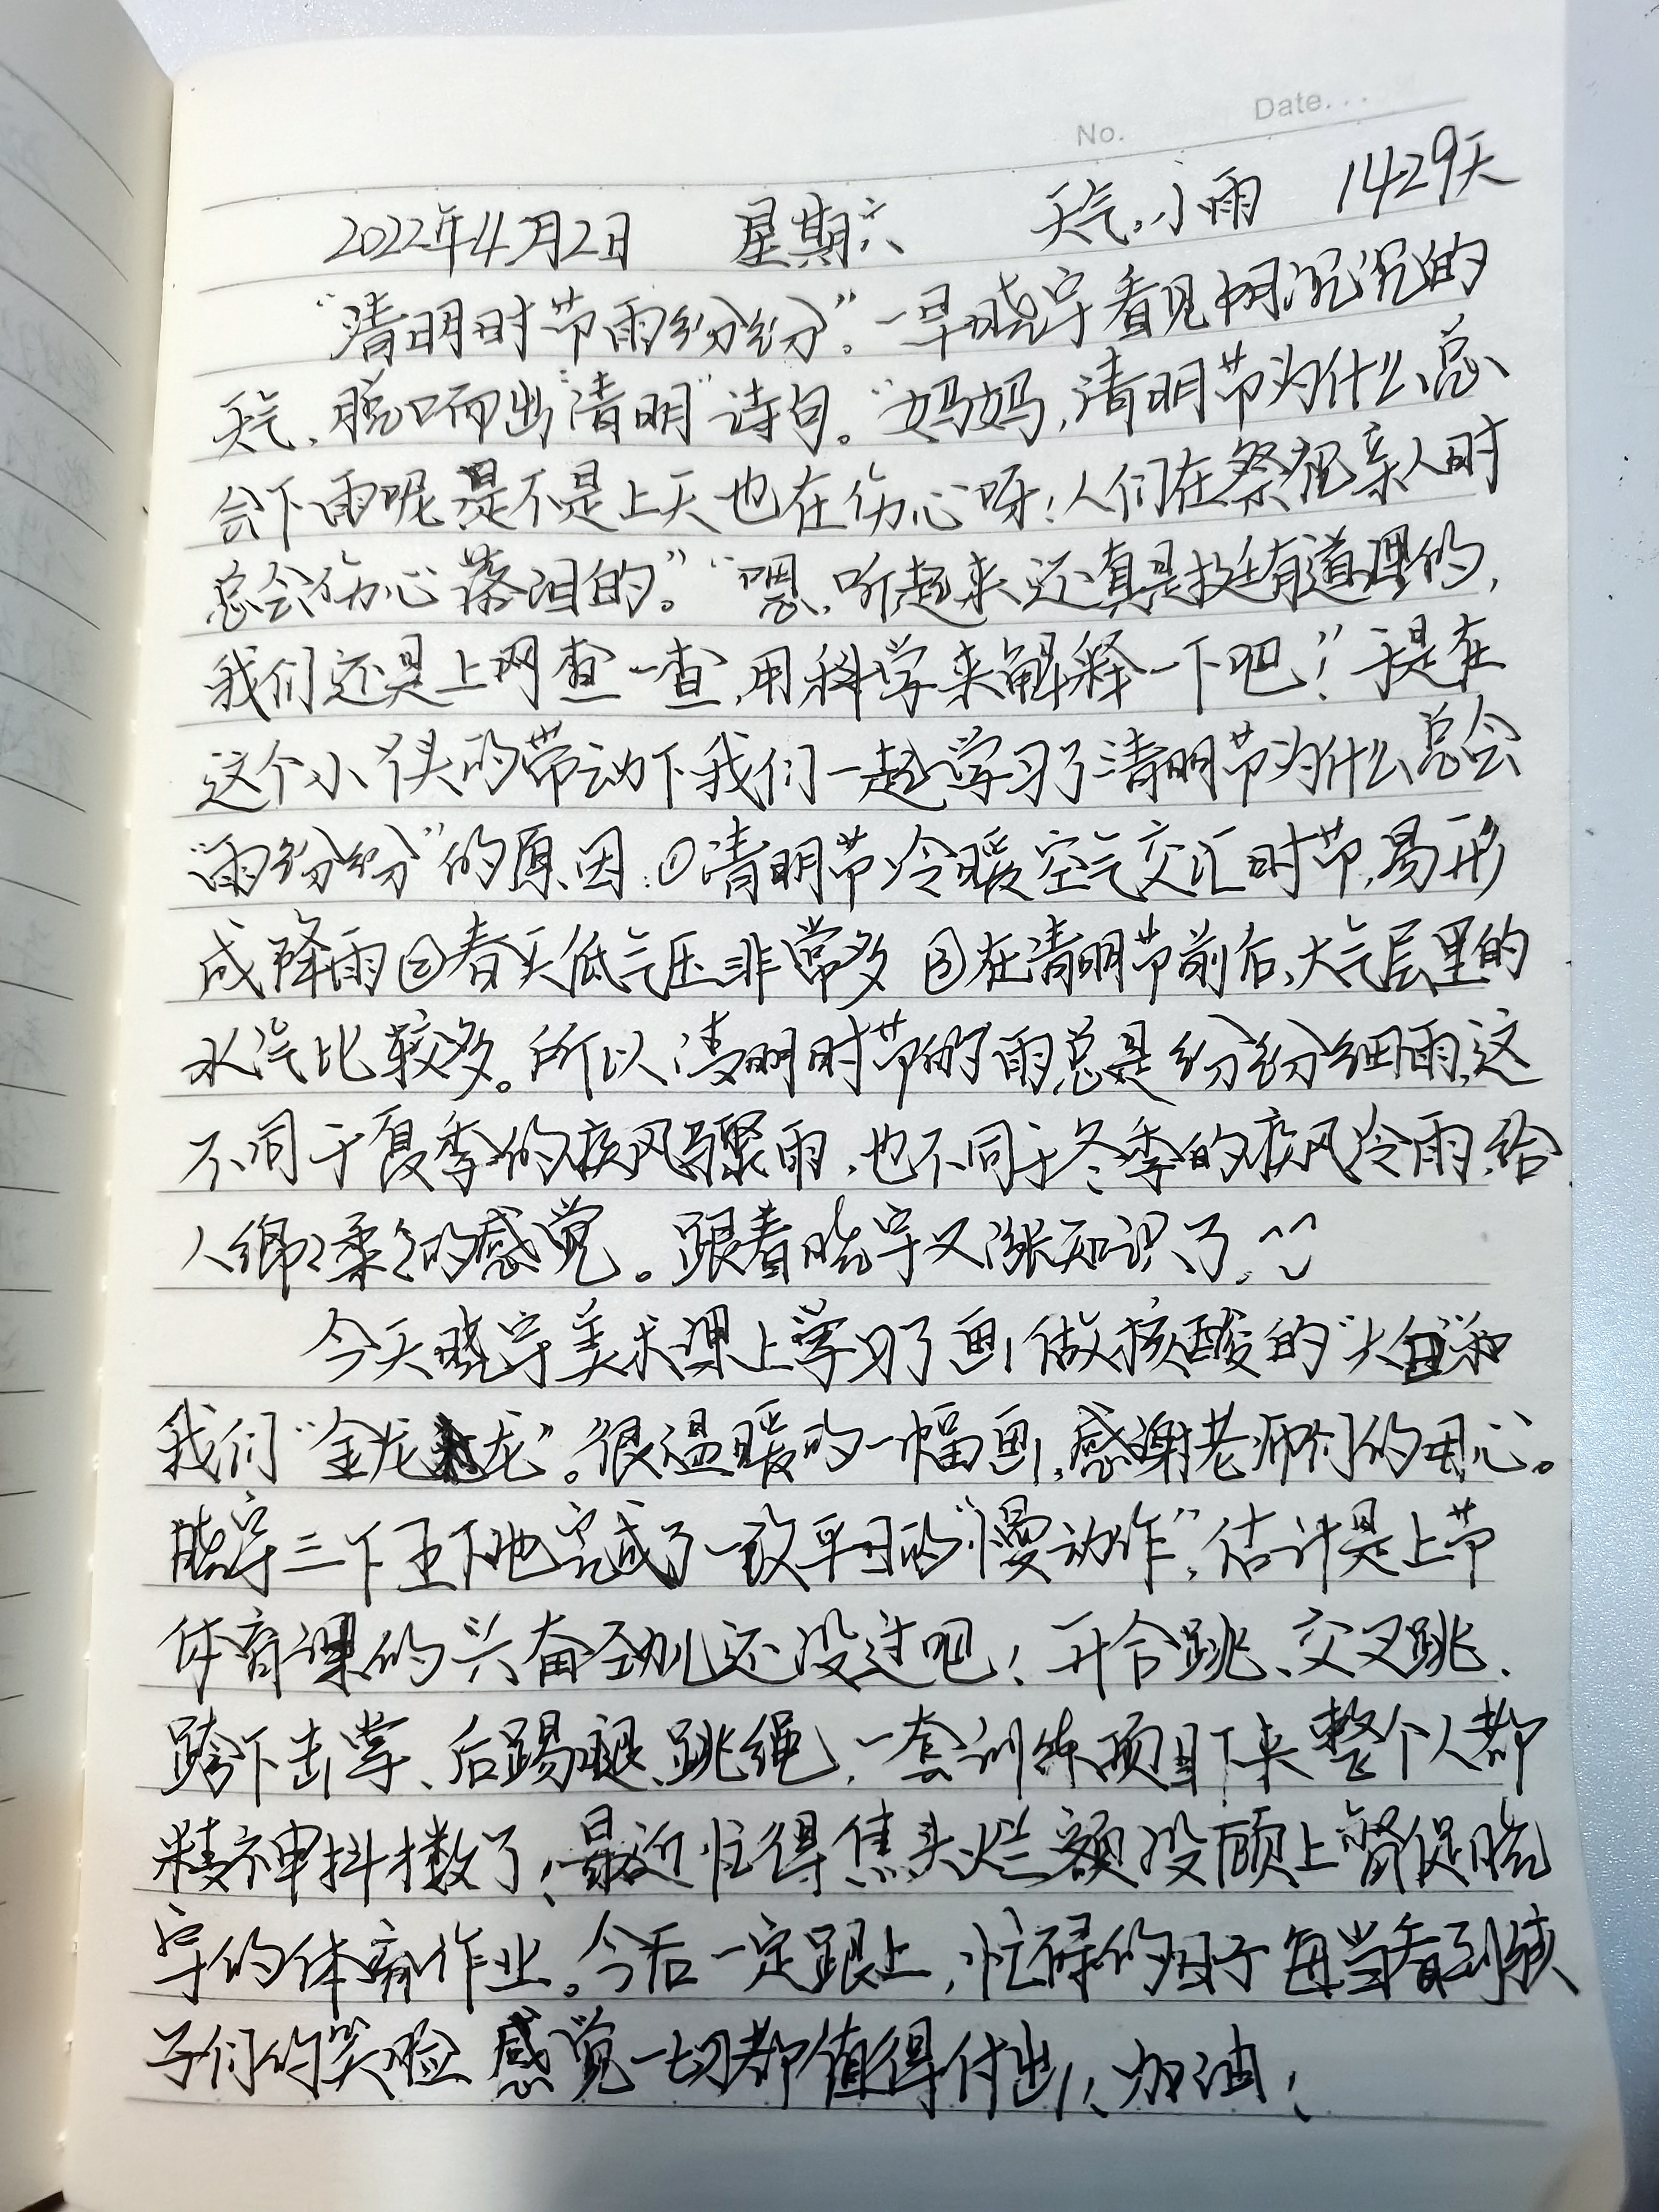 No. Date...
2022年4月2日 星期六 天气:小雨 1429天
“清明时节雨纷纷”。一早晓宇看见阴沉沉的
天气,脱口而出“清明”诗句。“妈妈,清明节为什么总
会下雨呢是不是上天也在伤心呀!人们在祭祀亲人时
总会伤心落泪的。”“嗯,听起来还真是挺有道理的,
我们还是上网查一查,用科学来解释一下吧!”于是在
这个小丫头的带动下我们一起学习了清明节为什么总会
“雨纷纷”的原因:①清明节冷暖空气交汇时节,易形
成降雨②春天低气压非常多 ③在清明节前后,大气层里的
水汽比较多。所以清明时节的雨总是纷纷细雨,这
不同于夏季的疾风骤雨,也不同于冬季的疾风冷雨,给
人绵绵柔柔的感觉。跟着晓宇又涨知识了。
今天晓宇美术课上学习了画做核酸的“大白”和
我们“金龙龙”。很温暖的一幅画,感谢老师们的用心。
晓宇三下五下地完成了一改平日的“慢动作”,估计是上节
体育课的兴奋劲儿还没过吧!开合跳、交叉跳、
跨下击掌、后踢腿、跳绳,一套训练项目下来整个人都
精神抖擞了!最近忙得焦头烂额没顾上督促晓
宇的体育作业。今后一定跟上,忙碌的日子每当看到孩
子们的笑脸 感觉一切都值得付出!加油!